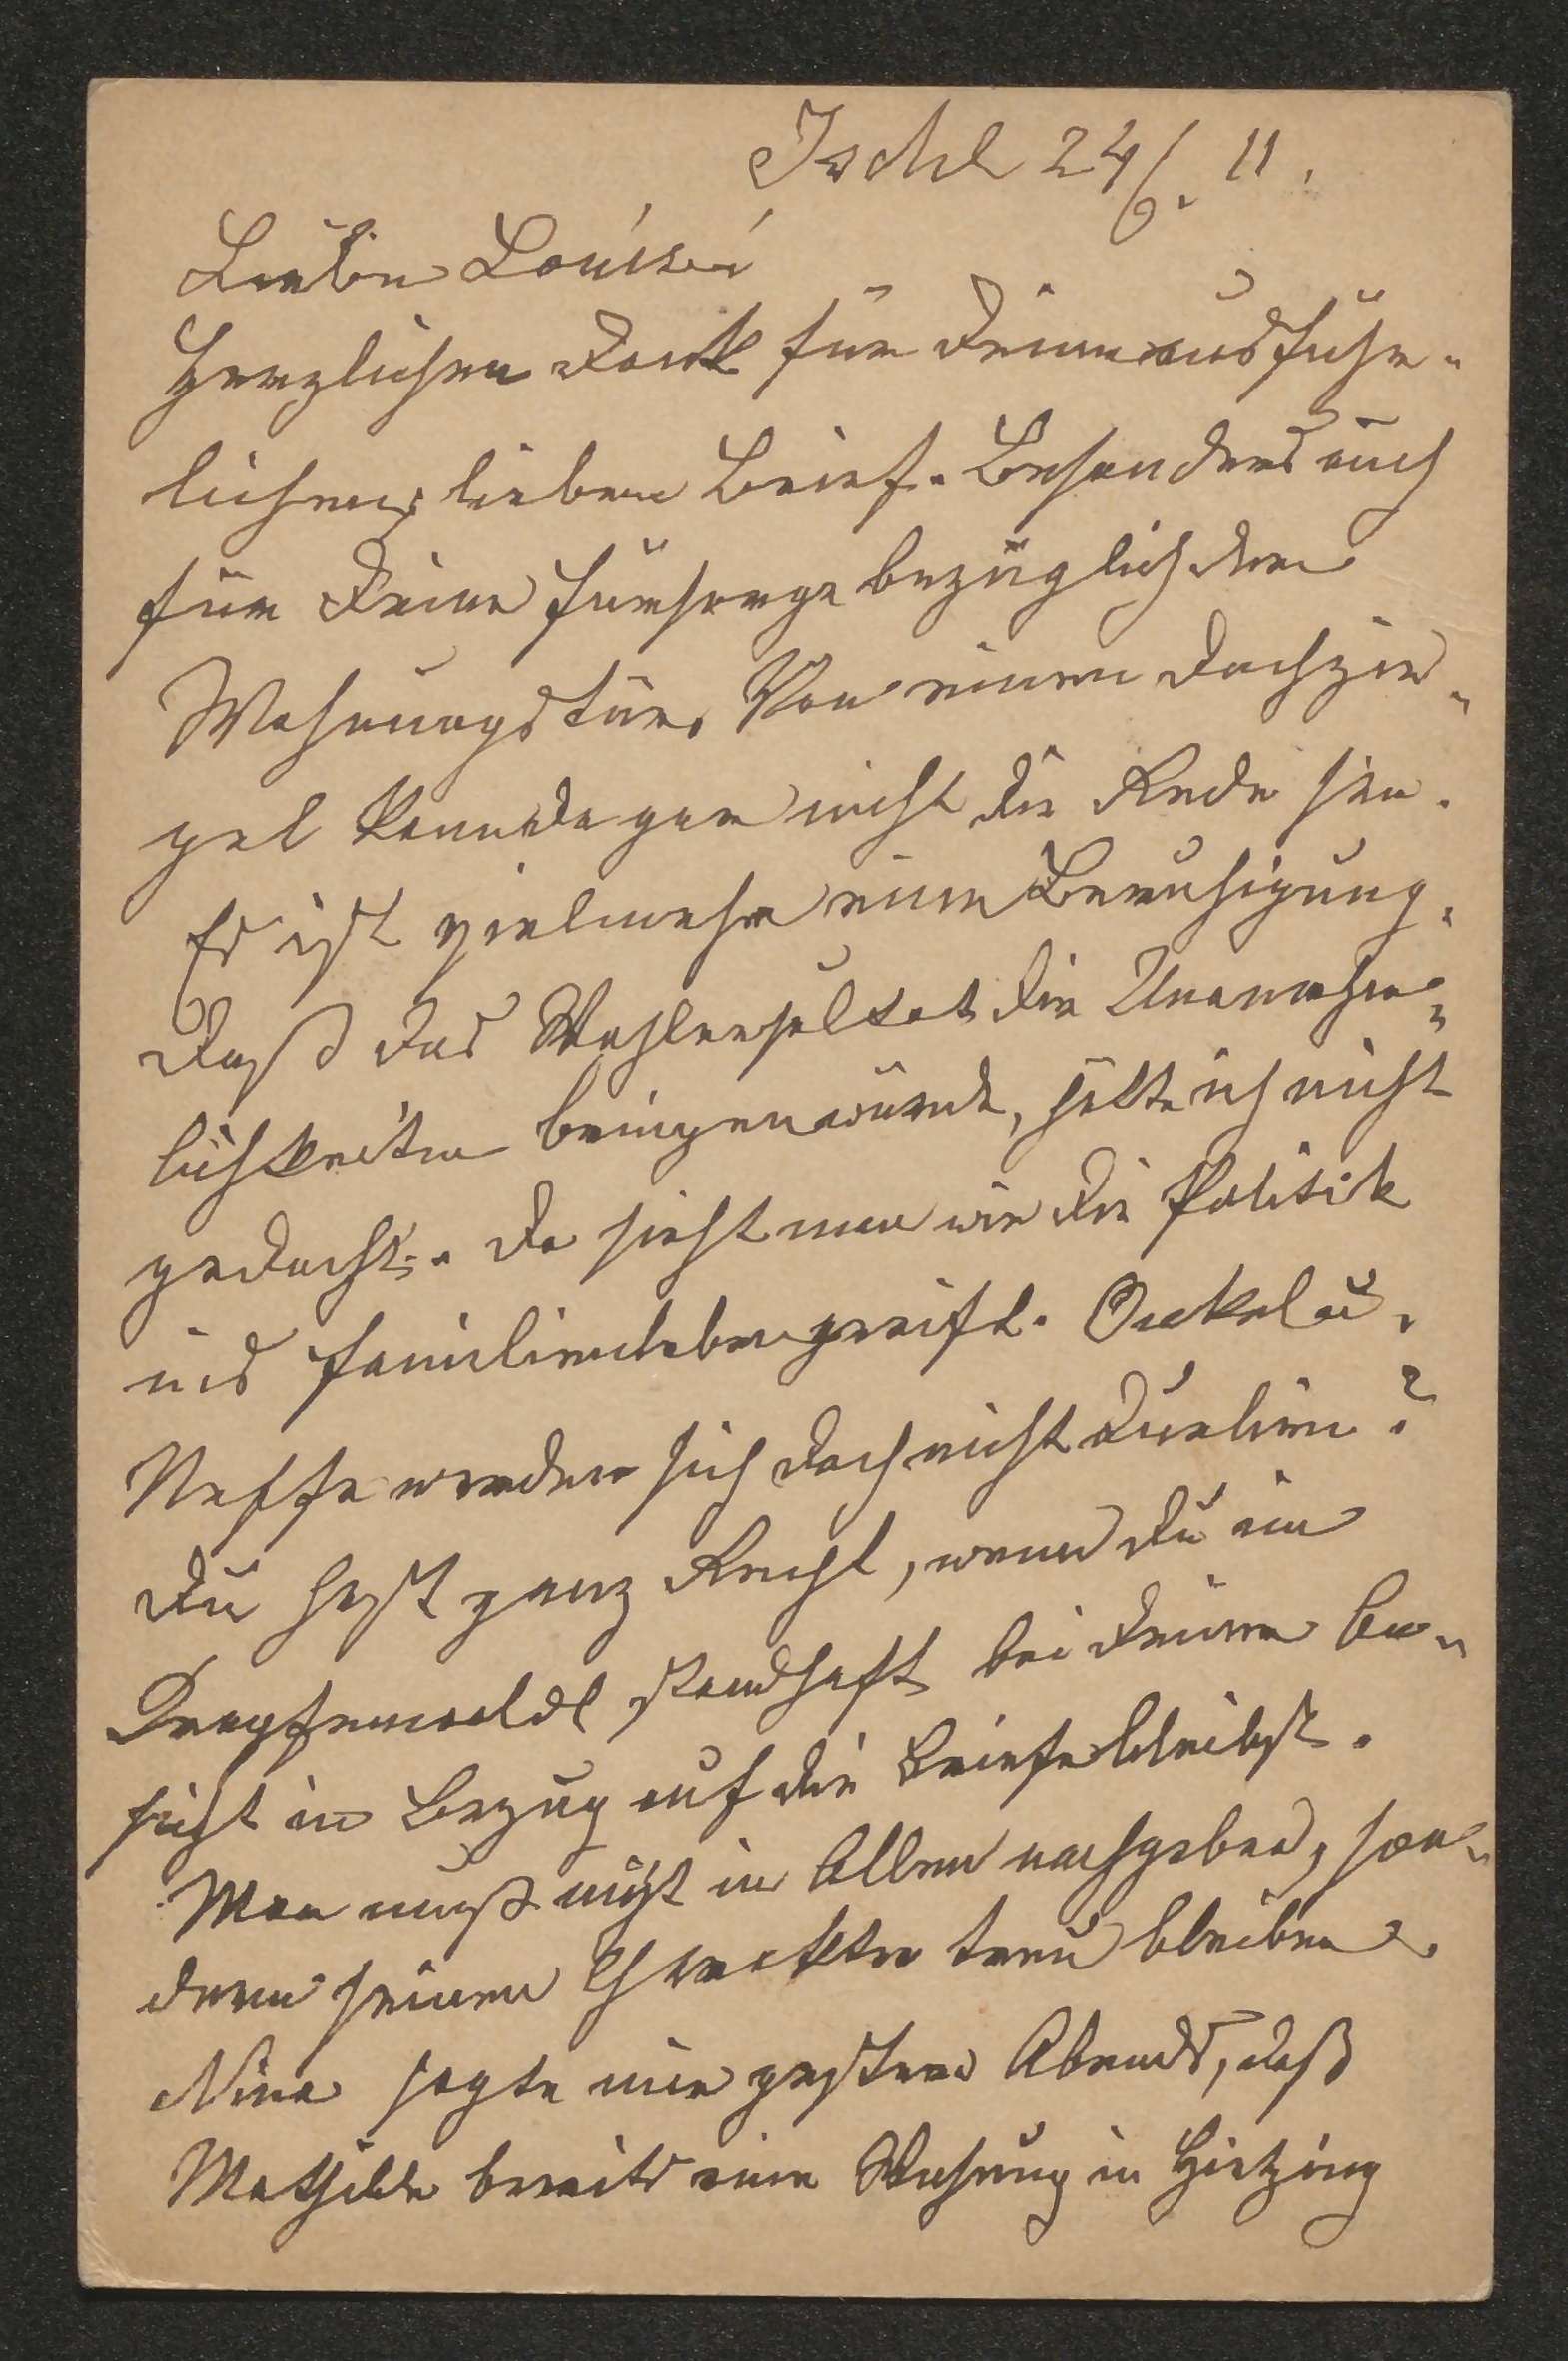 Ischl 24/6. 11.
Liebe Louise!
Herzlichen Dank für Deinen ausführ-
lichen, lieben Brief. Besonders auch
für Deine Fürsorge bezüglich der
Wohnungstür. Von einem Dachzie-
gel kann da gar nicht die Rede sein.
Es ist vielmehr eine Beruhigung.
Daß das Wahlresultat die Unannehm-
lichkeiten bringen würde, hätte ich nicht
gedacht. Da sieht man wie die Politik
ins Familienleben greift. Onkel u.
Neffe werden sich doch nicht duelliren?
Du hast ganz Recht, wenn Du im
Krapfenwaldl standhaft bei Deiner An-
sicht in Bezug auf die Briefe bleibst.
Man muß nicht in Allem nachgeben, son-
dern seinem Charakter treu bleiben.
Nina sagte mir gestern Abends, daß
Mathilde bereits eine Wohnung in Hietzing